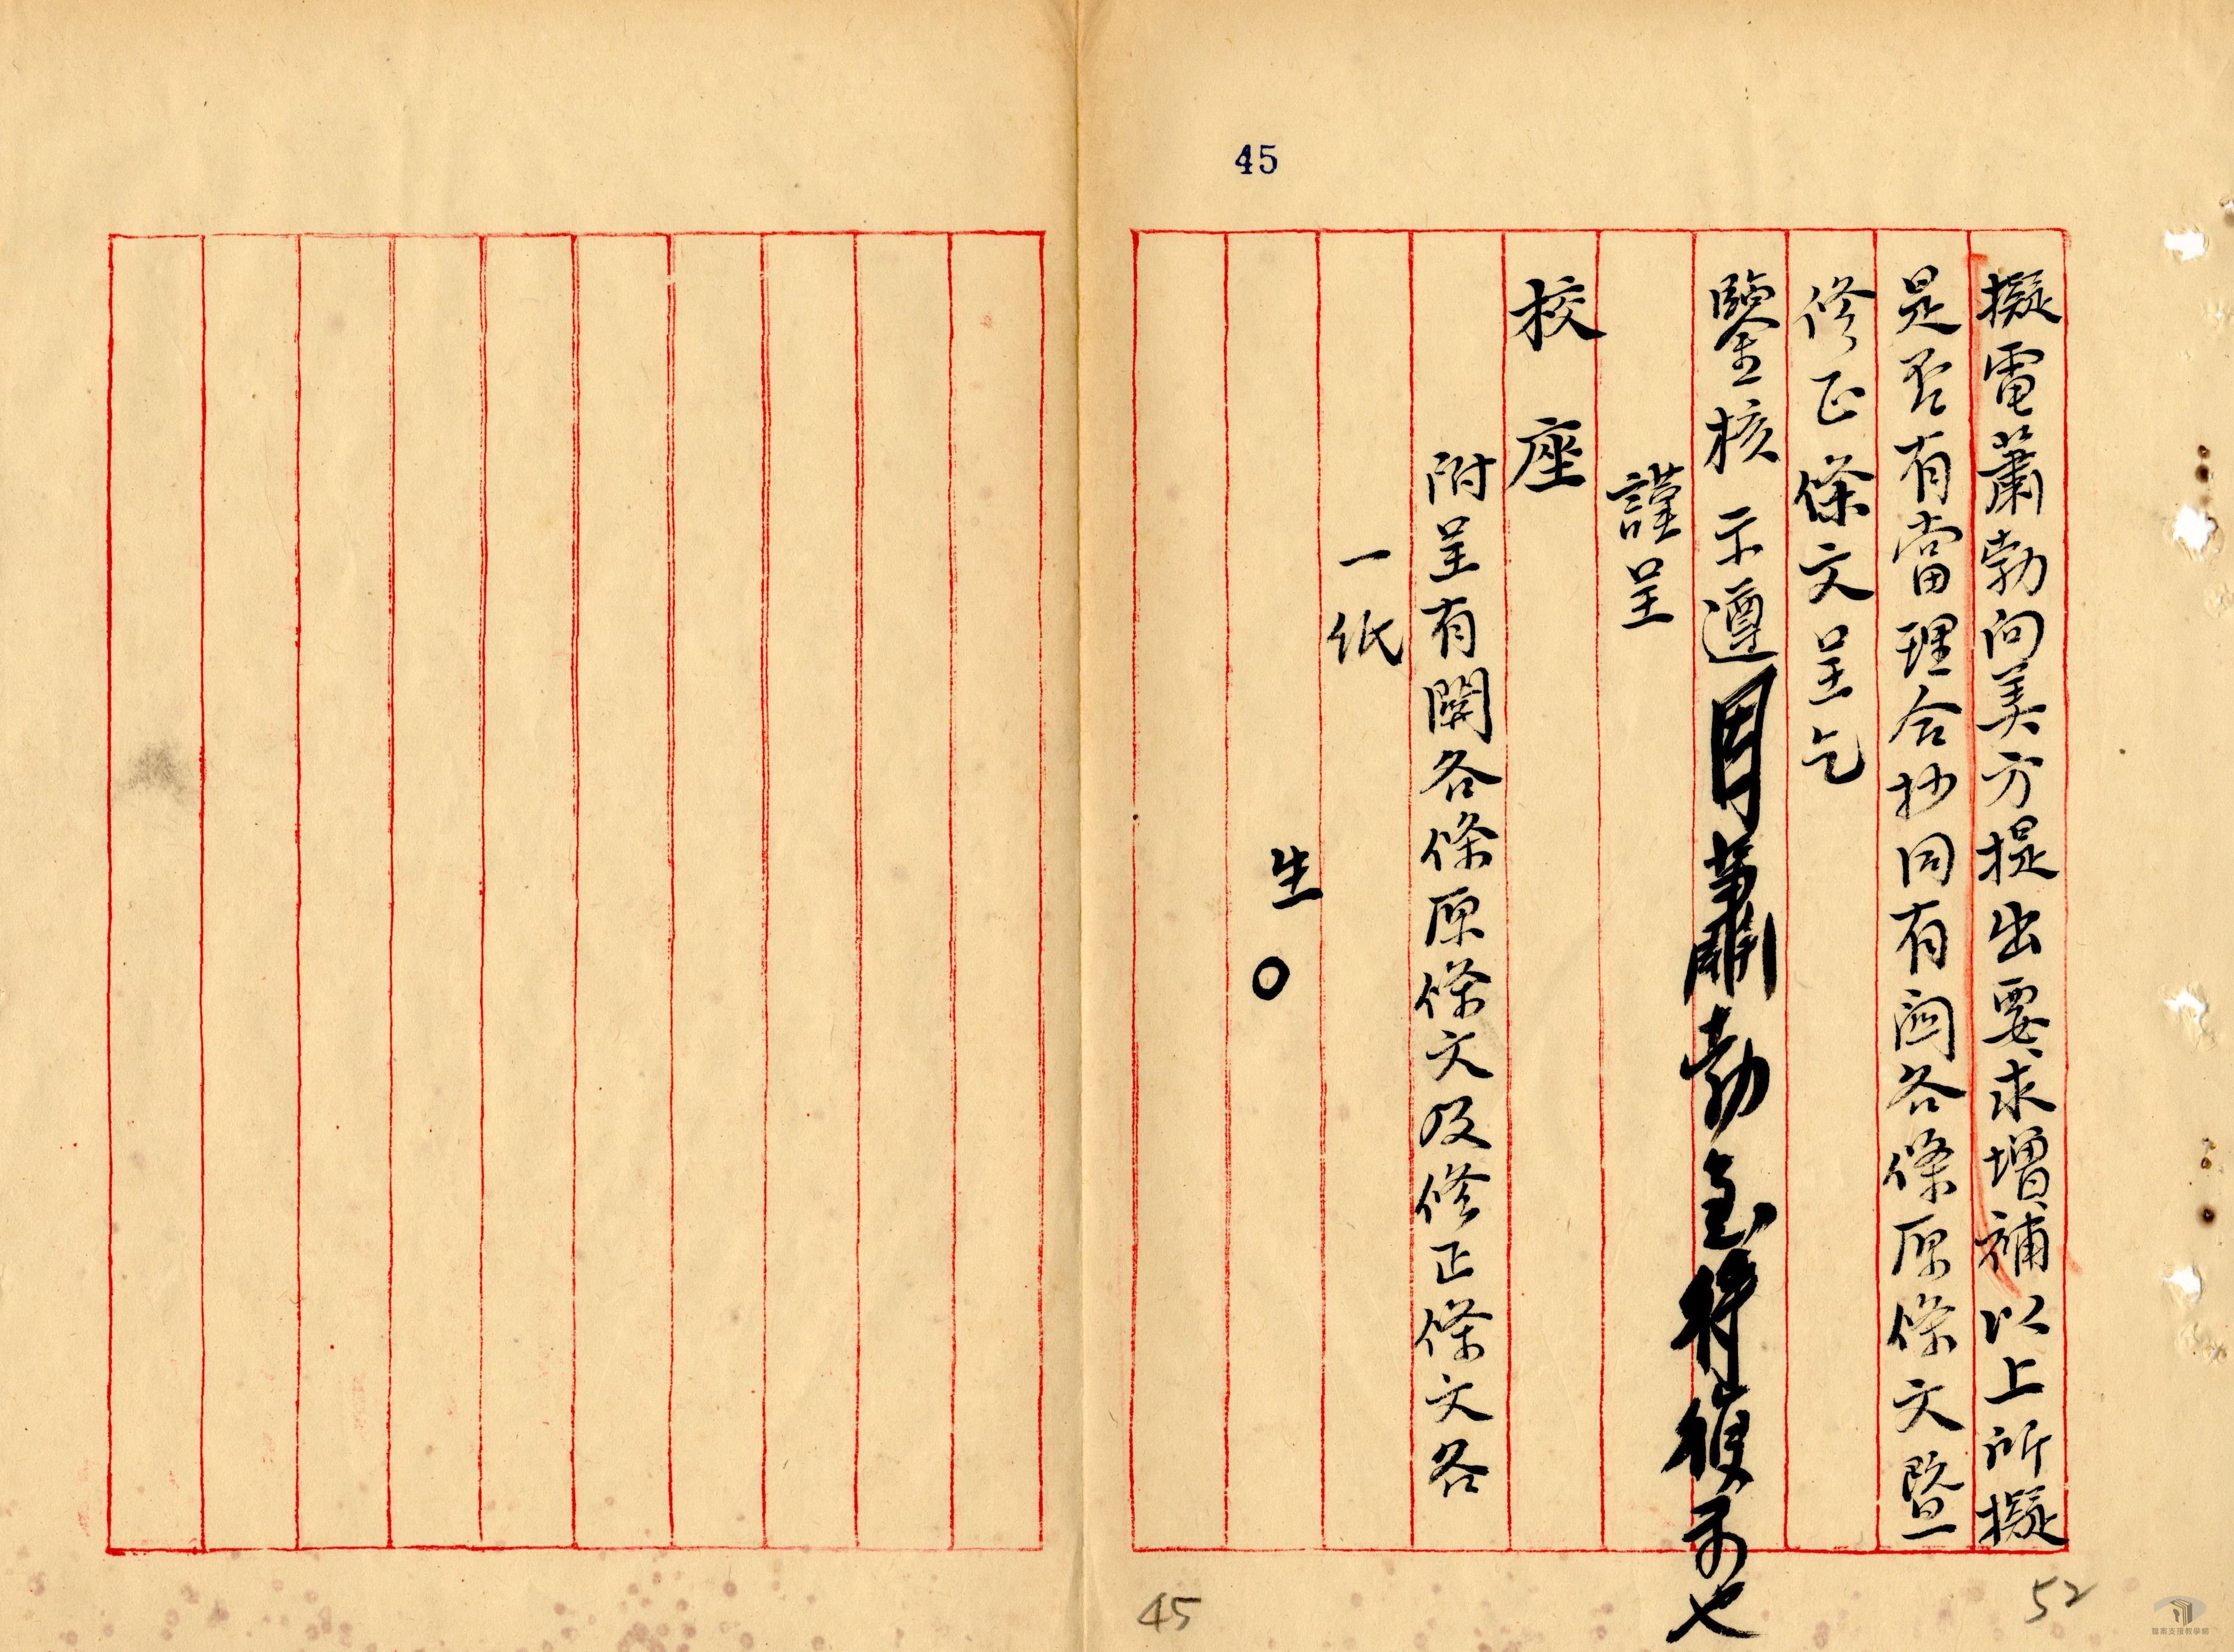 45
擬電蕭勃向美方提出要求增補以上所擬
是否有當理合抄同有關各條原條文暨
修正條文呈乞
鑒核示遵
蕭勃
謹呈
校座
附呈有關各條原條文及修正條文各
一紙
生○
45
52
檔案支援教學網